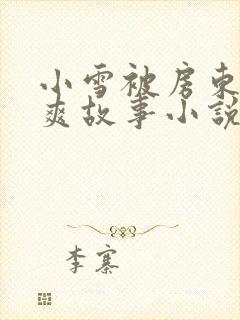 小雪被房东
爽故事小説
李寨